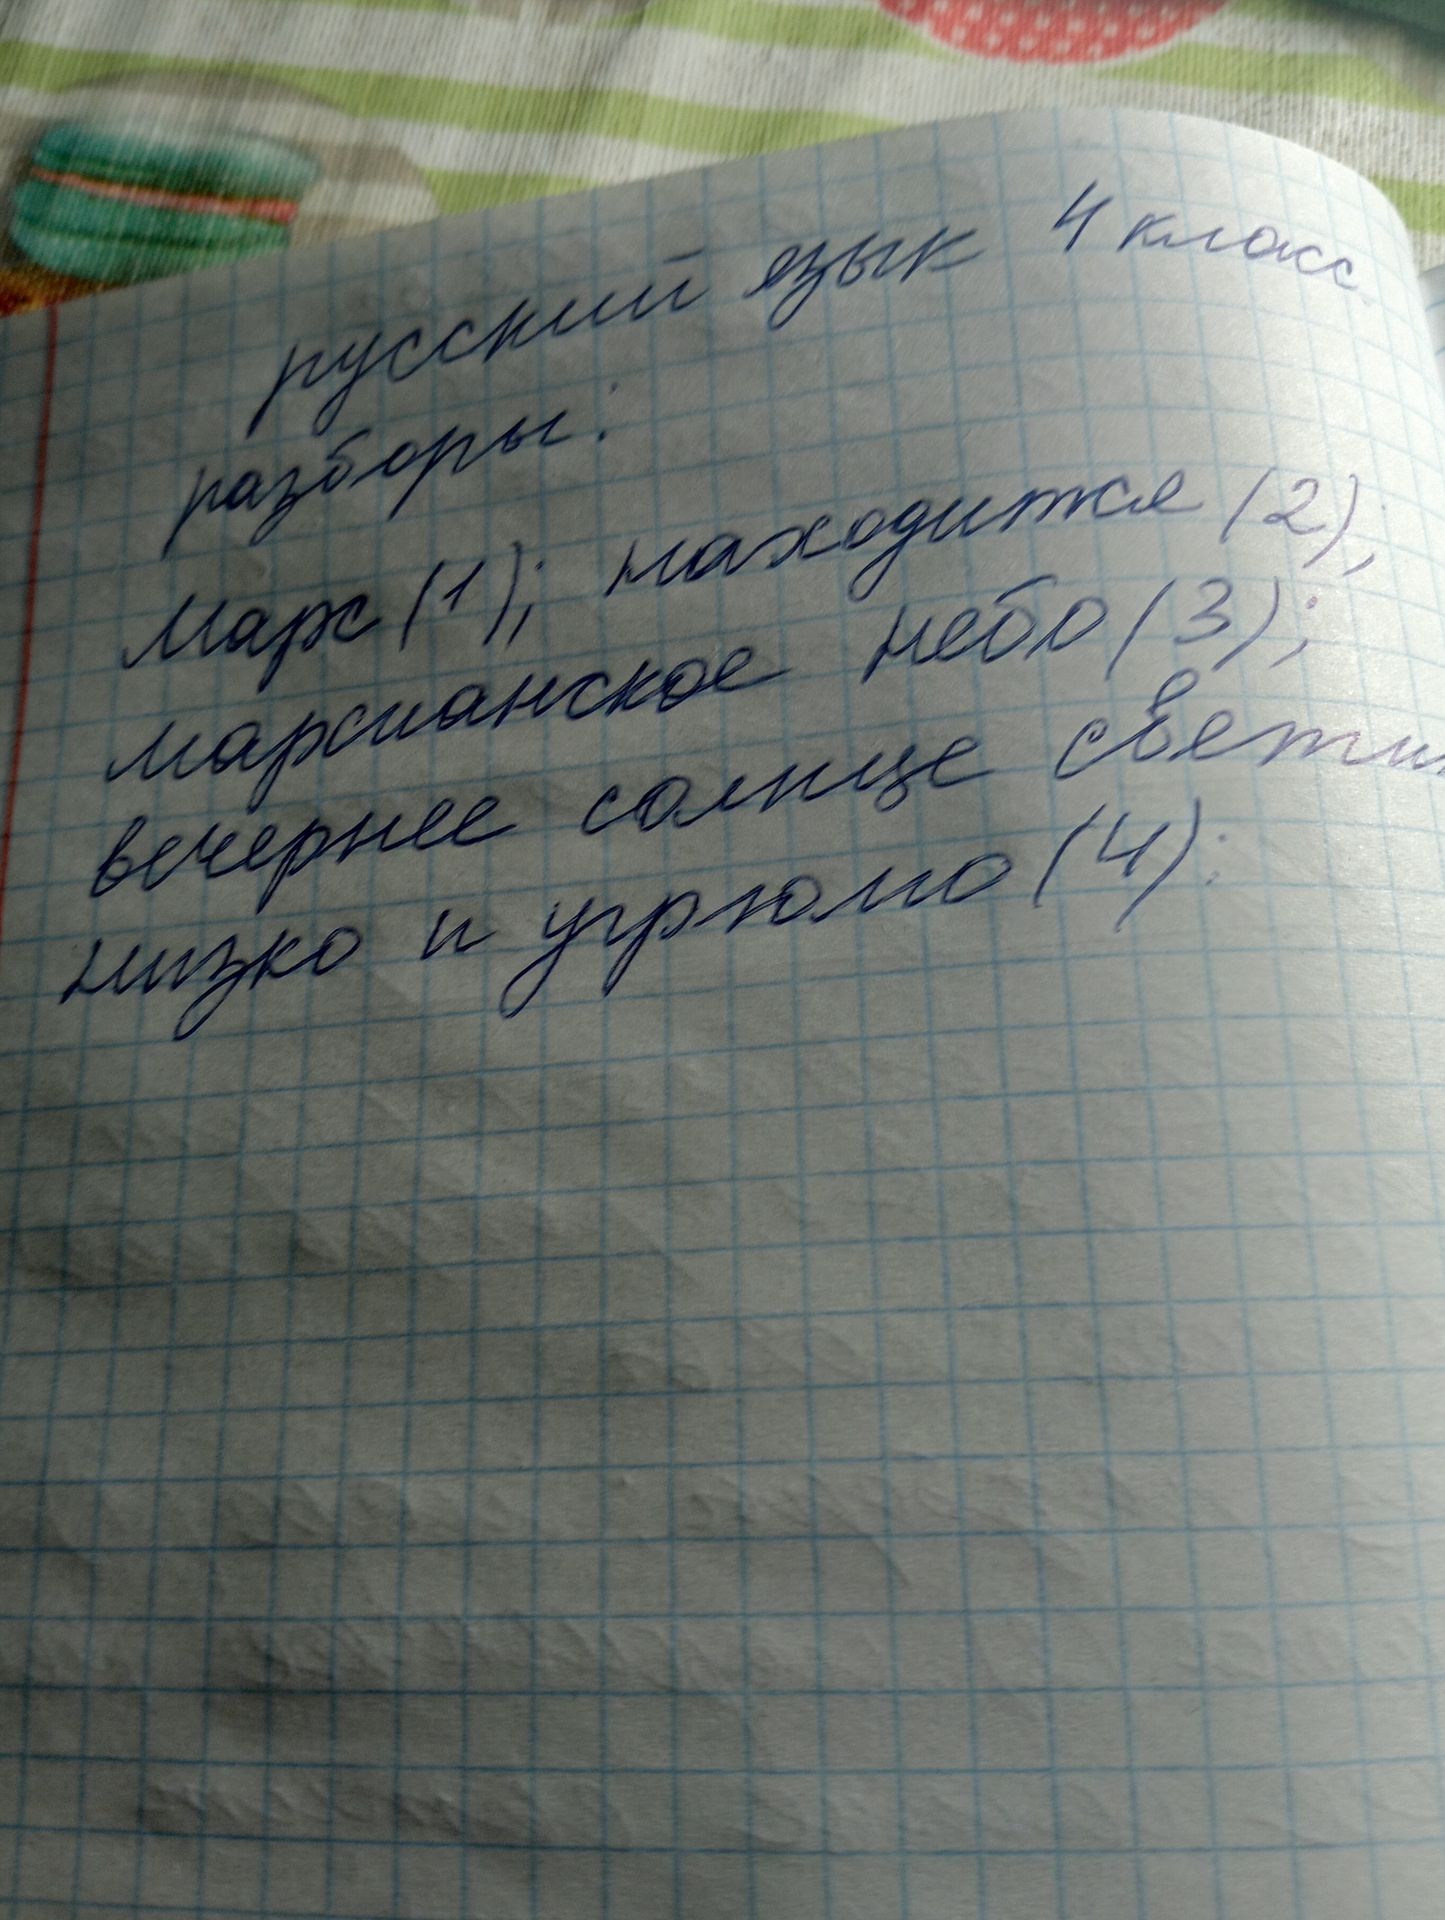 русский язык 4 класс.
разборы:
Марс (1); находится (2);
марсианское небо (3);
вечернее солнце
низко и угрюмо (4).